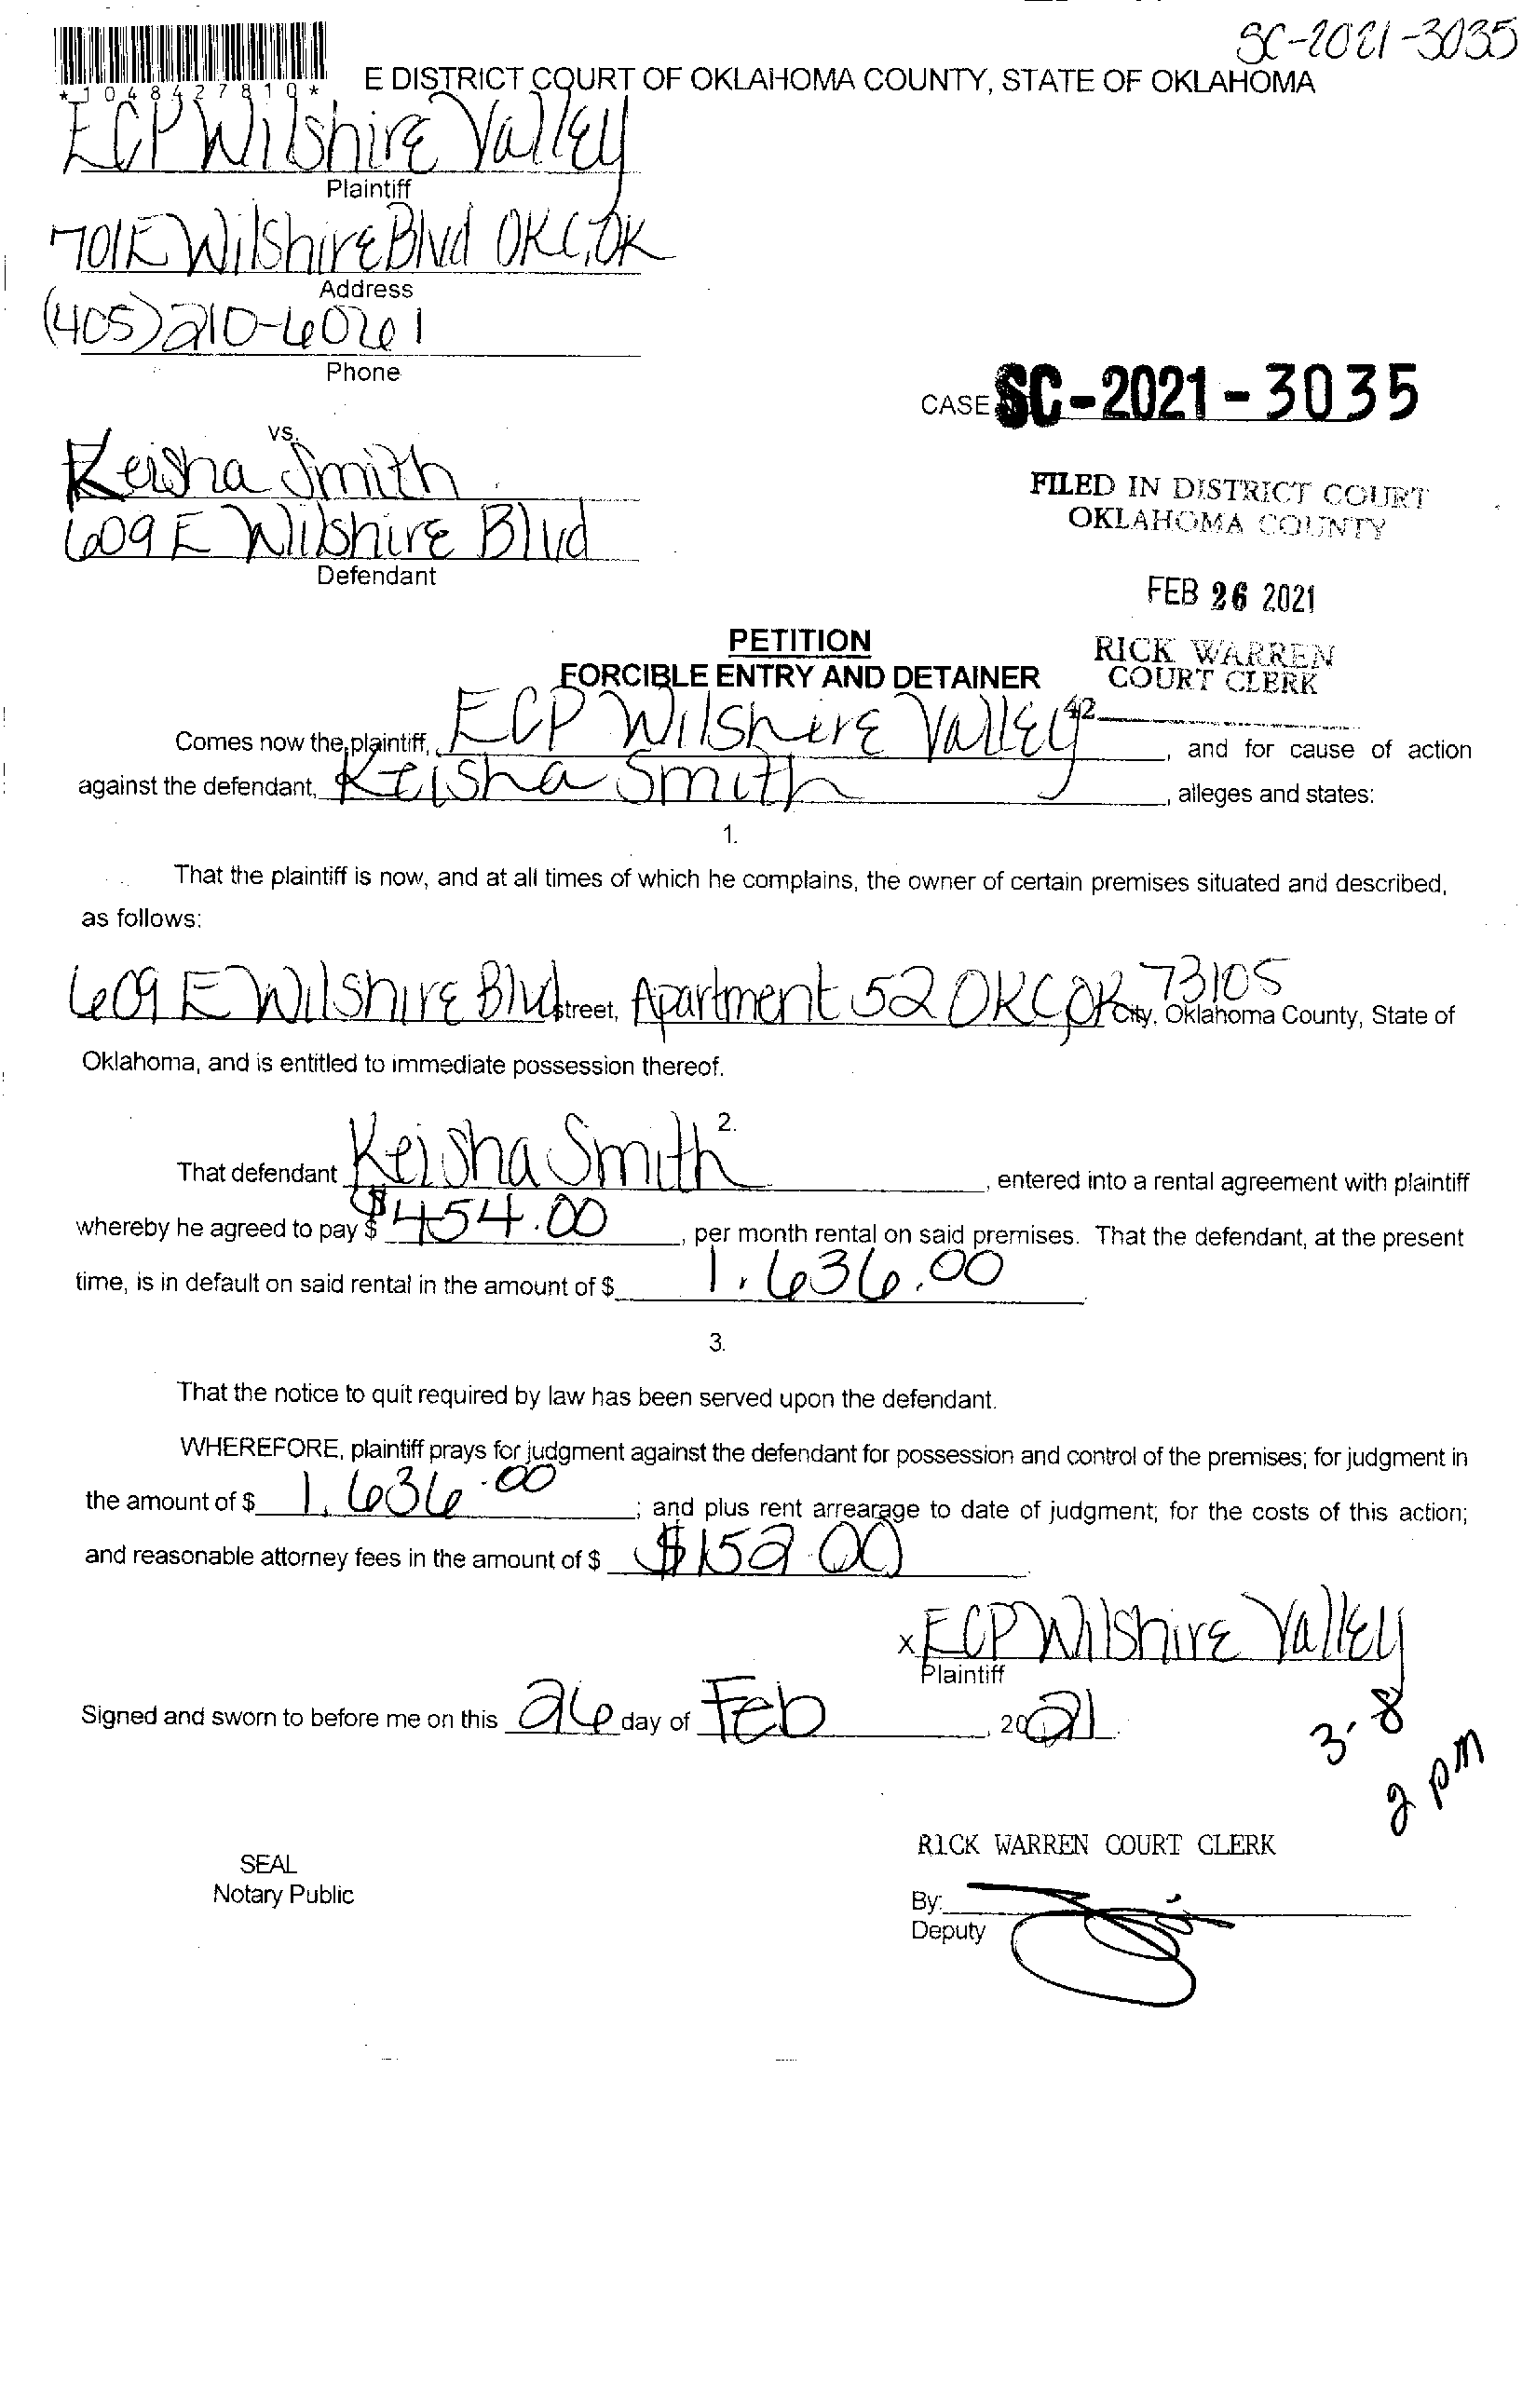 SC-2021-3035
*1048427810*
E DISTRICT COURT OF OKLAHOMA COUNTY, STATE OF OKLAHOMA
ECP Wilshire Valley
Plaintiff
701 E Wilshire Blvd OKC, OK
Address
(405) 210-6026 1
Phone
CASE SC-2021-3035
vs.
Keisha Smith
609 E Wilshire Blvd
Defendant
FILED IN DISTRICT COURT
OKLAHOMA COUNTY
FEB 26 2021
RICK WARREN
COURT CLERK
42
PETITION
FORCIBLE ENTRY AND DETAINER
Comes now the plaintiff, ECP Wilshire Valley, and for cause of action
against the defendant, Keisha Smith, alleges and states:
1.
That the plaintiff is now, and at all times of which he complains, the owner of certain premises situated and described,
as follows:
609 E Wilshire Blvd street, Apartment 52 OKC OK 73105 City, Oklahoma County, State of
Oklahoma, and is entitled to immediate possession thereof.
2.
That defendant Keisha Smith, entered into a rental agreement with plaintiff
whereby he agreed to pay $ $454.00, per month rental on said premises. That the defendant, at the present
time, is in default on said rental in the amount of $ 1,636.00.
3.
That the notice to quit required by law has been served upon the defendant.
WHEREFORE, plaintiff prays for judgment against the defendant for possession and control of the premises; for judgment in
the amount of $ 1,636.00; and plus rent arrearage to date of judgment; for the costs of this action;
and reasonable attorney fees in the amount of $ $152.00.
x ECP Wilshire Valley
Plaintiff
Signed and sworn to before me on this 26 day of Feb, 2021.
3-8
2 pm
RICK WARREN COURT CLERK
SEAL
Notary Public
By:
Deputy